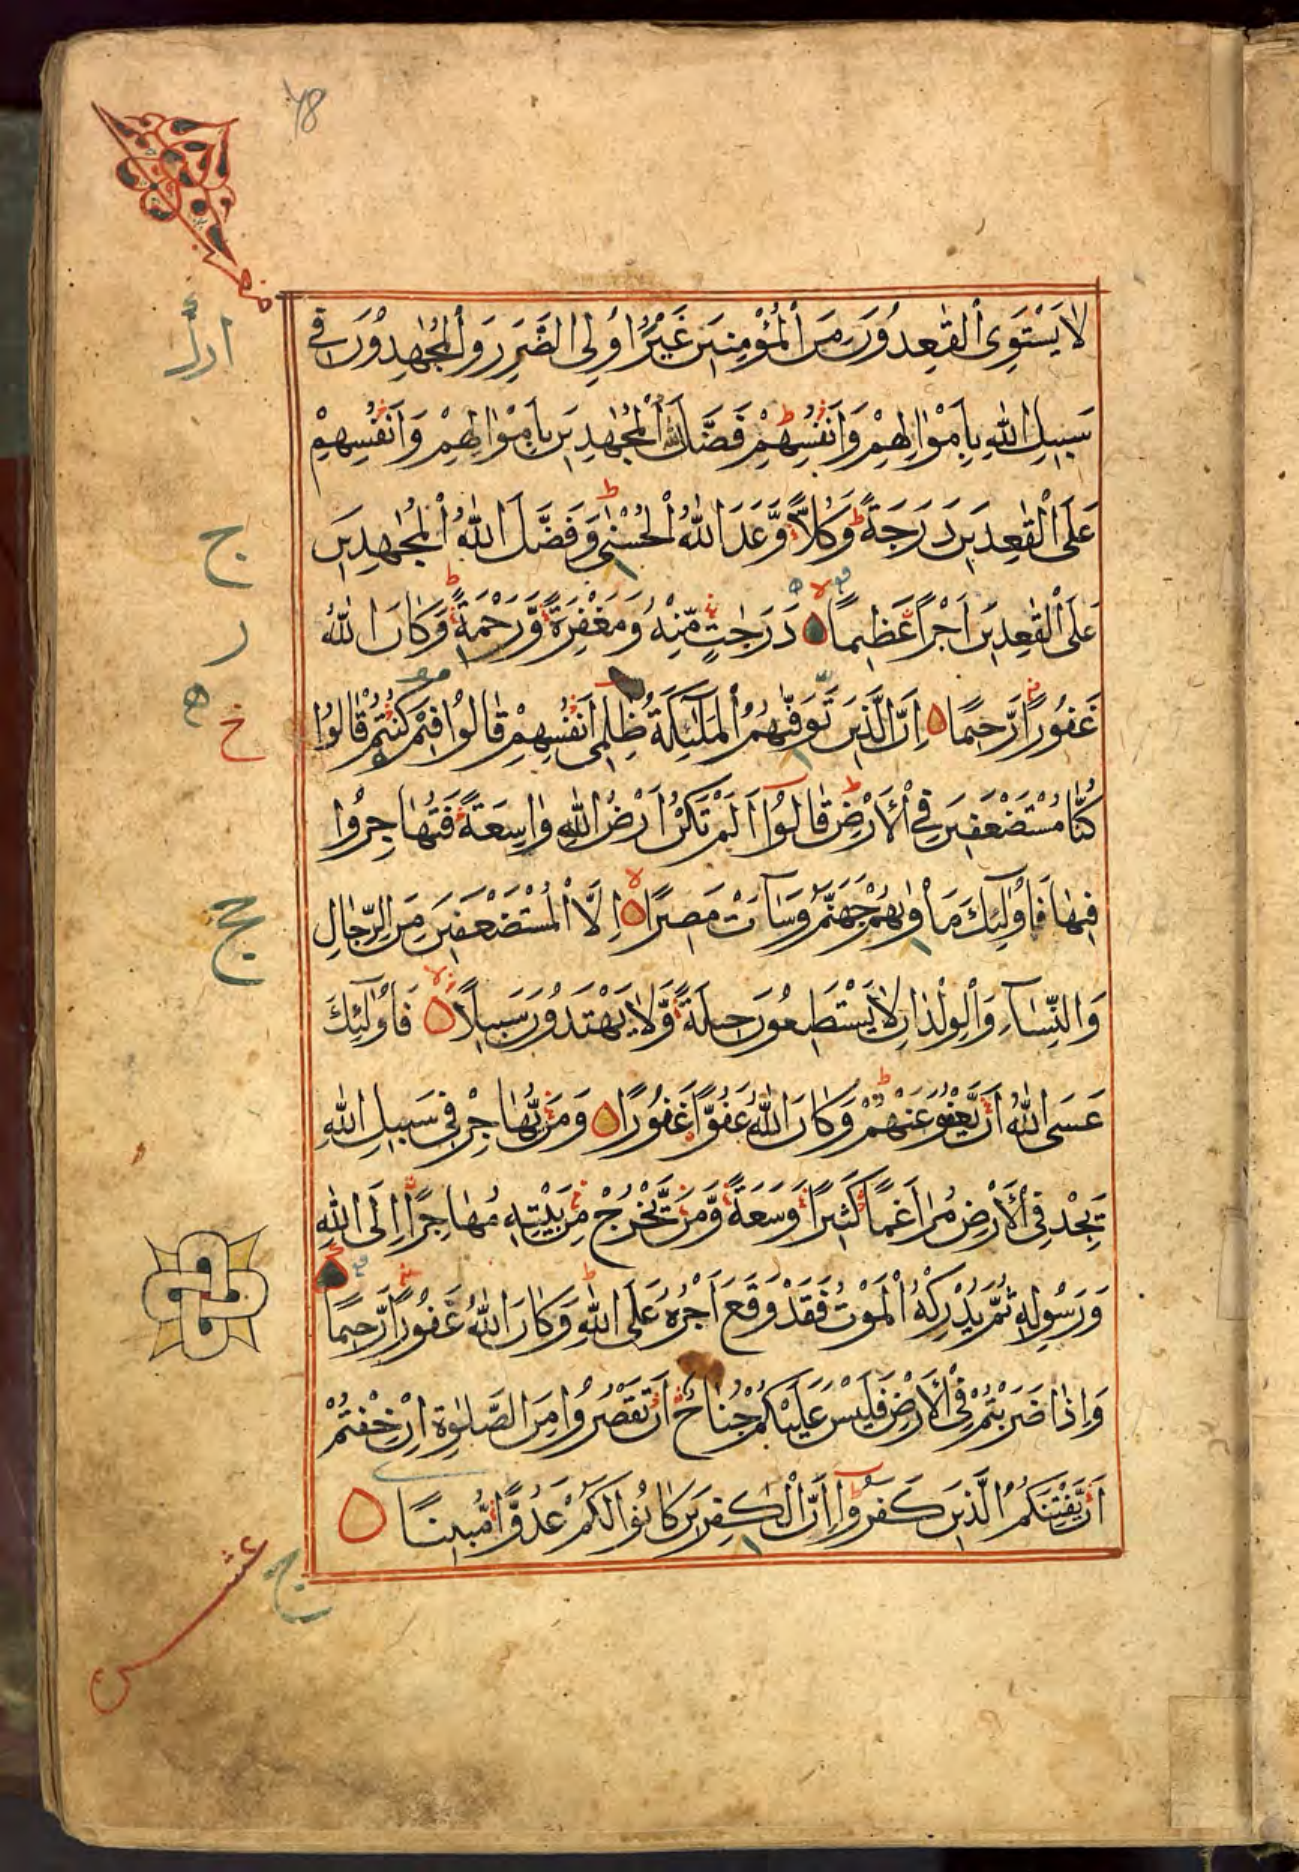 لَا يَسْتَوِى الْقٰعِدُونَ مِنَ الْمُؤْمِنِينَ غَيْرُ اُولِى الضَّرَرِ وَالْمُجٰهِدُونَ فِى
سَبِيلِ اللّٰهِ بِاَمْوٰالِهِمْ وَاَنْفُسِهِمْ فَضَّلَ اللّٰهُ الْمُجٰهِدِينَ بِاَمْوٰالِهِمْ وَاَنْفُسِهِمْ
عَلَى الْقٰعِدِينَ دَرَجَةً وَكُلًّا وَّعَدَ اللّٰهُ الْحُسْنٰى وَفَضَّلَ اللّٰهُ الْمُجٰهِدِينَ
عَلَى الْقٰعِدِينَ اَجْرًا عَظِيمًا دَرَجٰتٍ مِّنْهُ وَمَغْفِرَةً وَّرَحْمَةً وَكَانَ اللّٰهُ
غَفُورًا رَّحِيمًا اِنَّ الَّذِينَ تَوَفّٰىهُمُ الْمَلٰٓئِكَةُ ظٰلِمِى اَنْفُسِهِمْ قَالُوا فِيمَ كُنْتُمْ قَالُوا
كُنَّا مُسْتَضْعَفِينَ فِى الْاَرْضِ قَالُوٓا اَلَمْ تَكُنْ اَرْضُ اللّٰهِ وٰاسِعَةً فَتُهَاجِرُوا
فِيهَا فَاُولٰٓئِكَ مَأْوٰىهُمْ جَهَنَّمُ وَسَآءَتْ مَصِيرًا اِلَّا الْمُسْتَضْعَفِينَ مِنَ الرِّجَالِ
وَالنِّسَآءِ وَالْوِلْدٰانِ لَا يَسْتَطِيعُونَ حِيلَةً وَّلَا يَهْتَدُونَ سَبِيلًا فَاُولٰٓئِكَ
عَسَى اللّٰهُ اَنْ يَّعْفُوَ عَنْهُمْ وَكَانَ اللّٰهُ عَفُوًّا غَفُورًا وَمَنْ يُّهَاجِرْ فِى سَبِيلِ اللّٰهِ
يَجِدْ فِى الْاَرْضِ مُرَاغَمًا كَثِيرًا وَّسَعَةً وَّمَنْ يَّخْرُجْ مِنْ بَيْتِهِ مُهَاجِرًا اِلَى اللّٰهِ
وَرَسُولِهِ ثُمَّ يُدْرِكْهُ الْمَوْتُ فَقَدْ وَقَعَ اَجْرُهُ عَلَى اللّٰهِ وَكَانَ اللّٰهُ غَفُورًا رَّحِيمًا
وَاِذَا ضَرَبْتُمْ فِى الْاَرْضِ فَلَيْسَ عَلَيْكُمْ جُنَاحٌ اَنْ تَقْصُرُوا مِنَ الصَّلٰوةِ اِنْ خِفْتُمْ
اَنْ يَّفْتِنَكُمُ الَّذِينَ كَفَرُوٓا اِنَّ الْكٰفِرِينَ كَانُوا لَكُمْ عَدُوًّا مُّبِينًا
ج
ر
خ ه
ج
ج
عشر